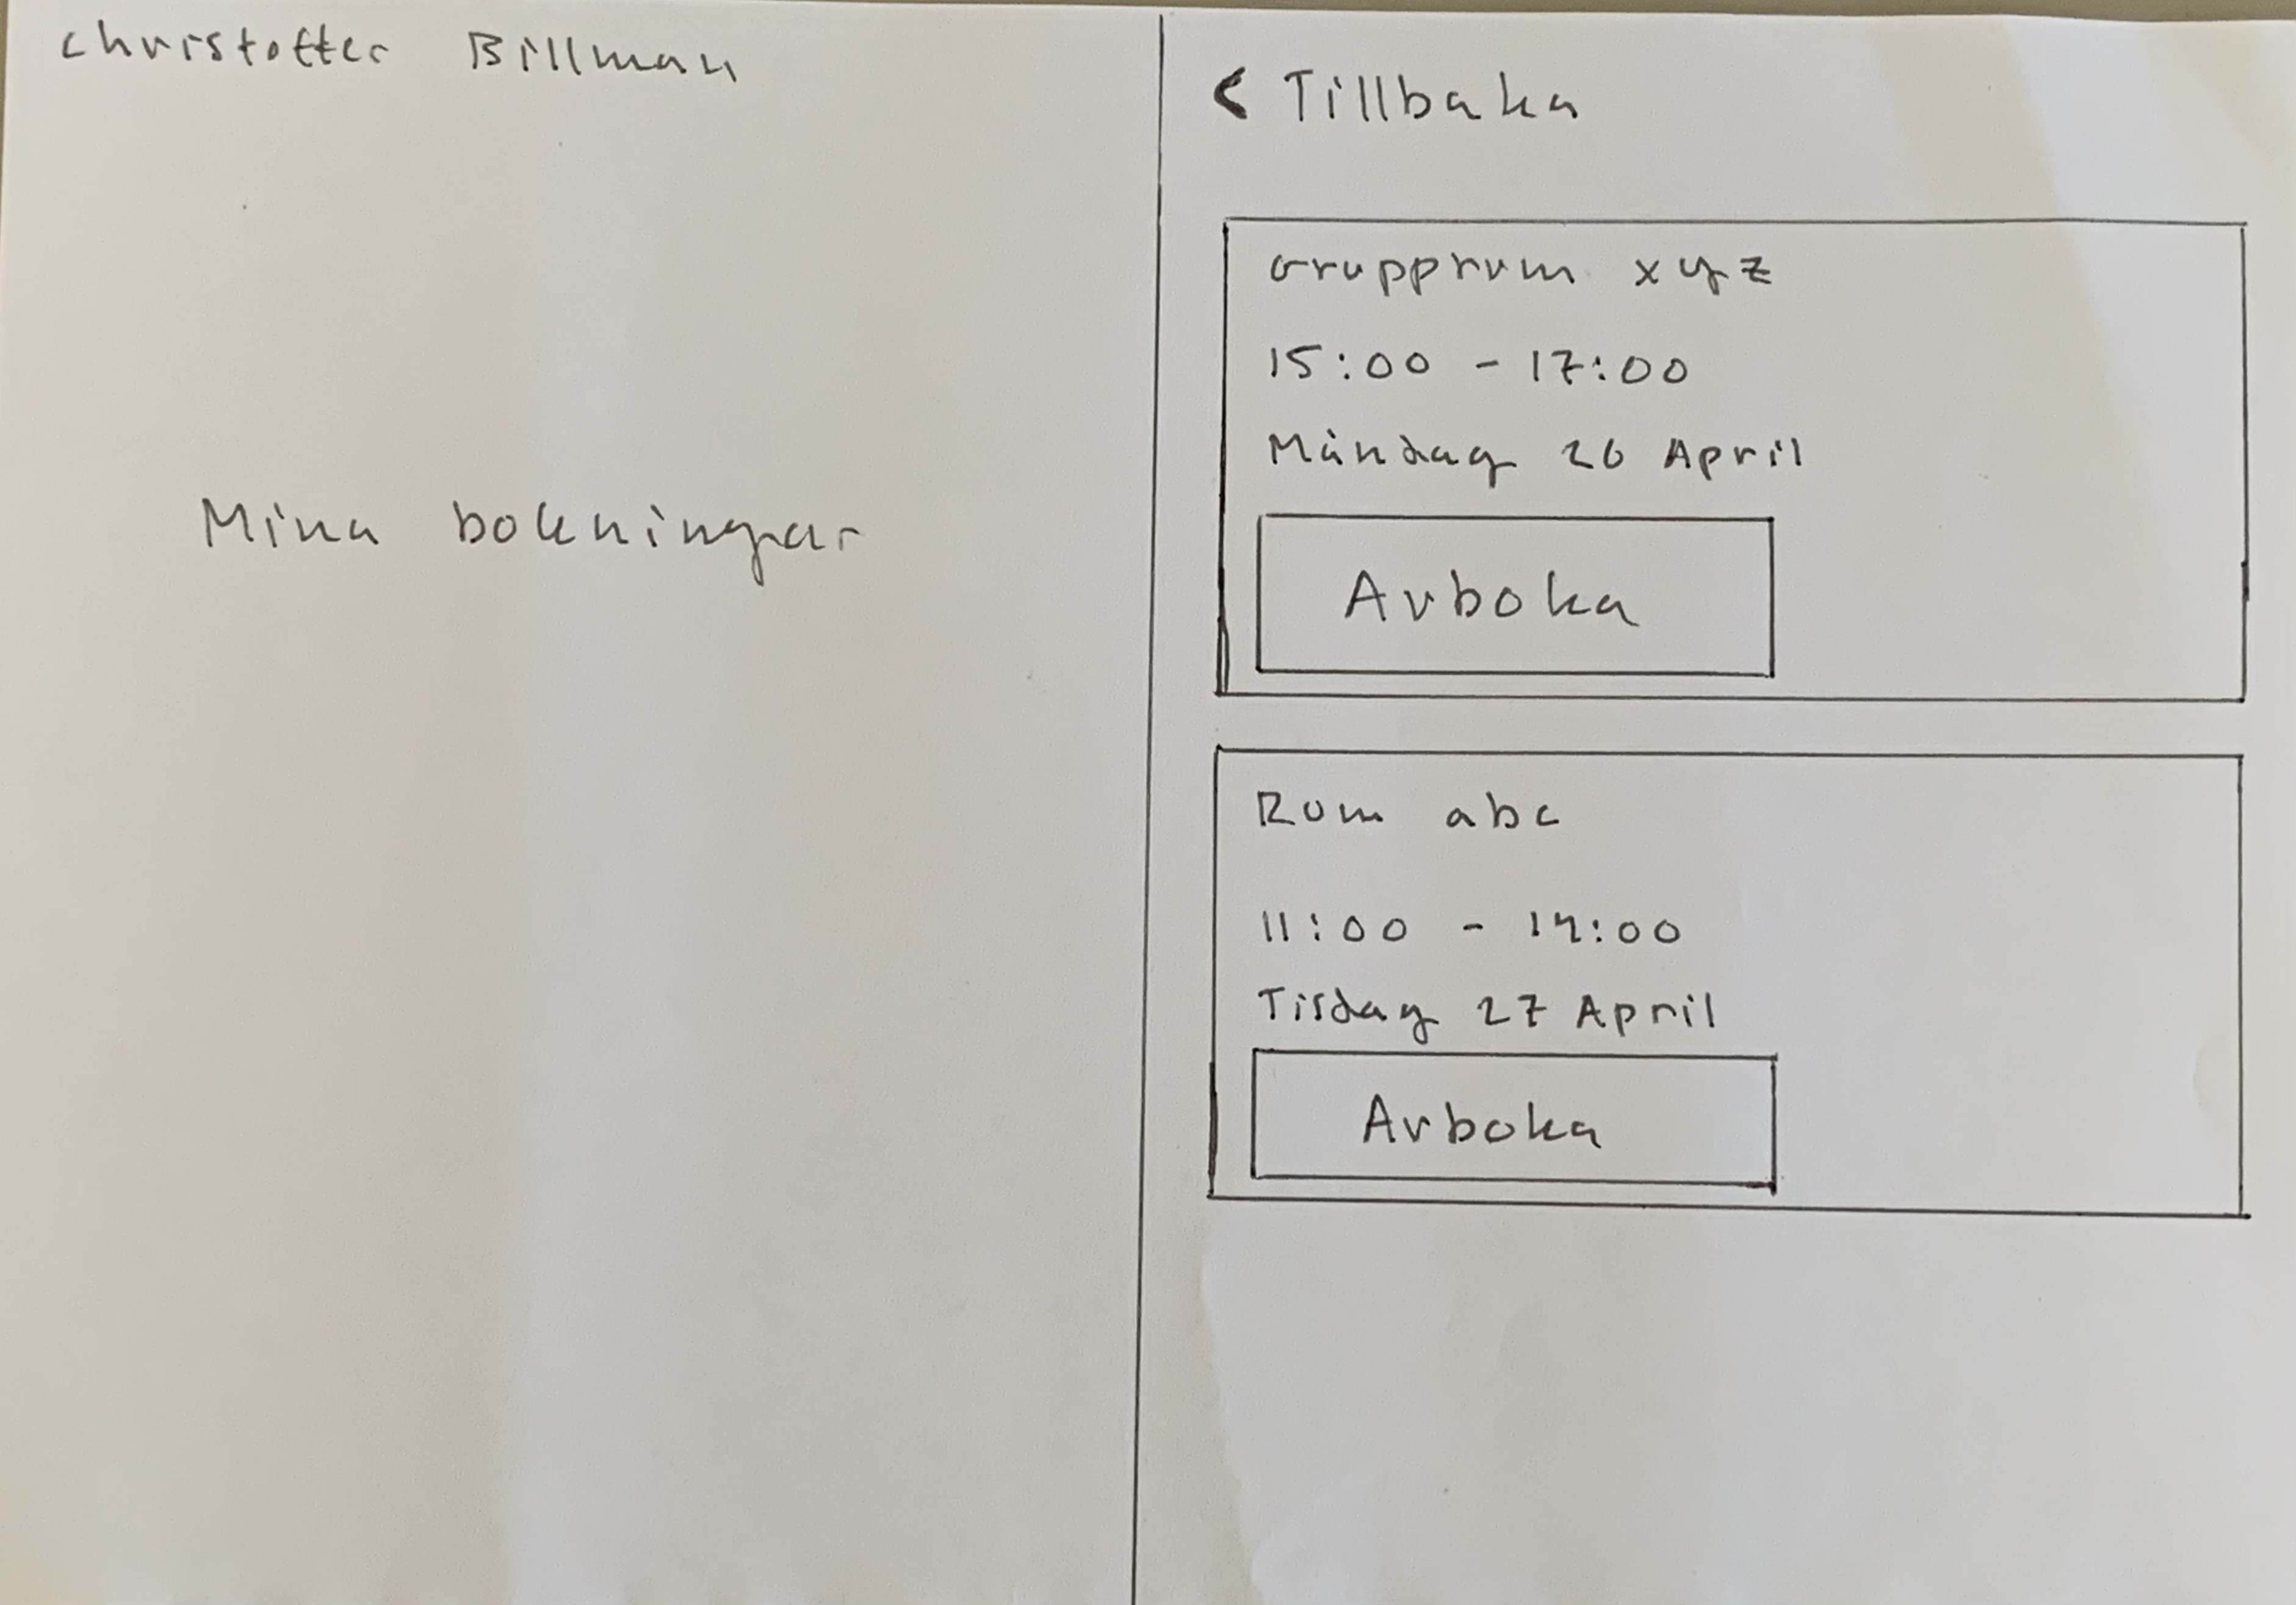 Christoffer Billman
Mina bokningar
< Tillbaka
Grupprum xyz
15:00 - 17:00
Måndag 26 April
Avboka
Rum abc
11:00 - 14:00
Tisdag 27 April
Avboka